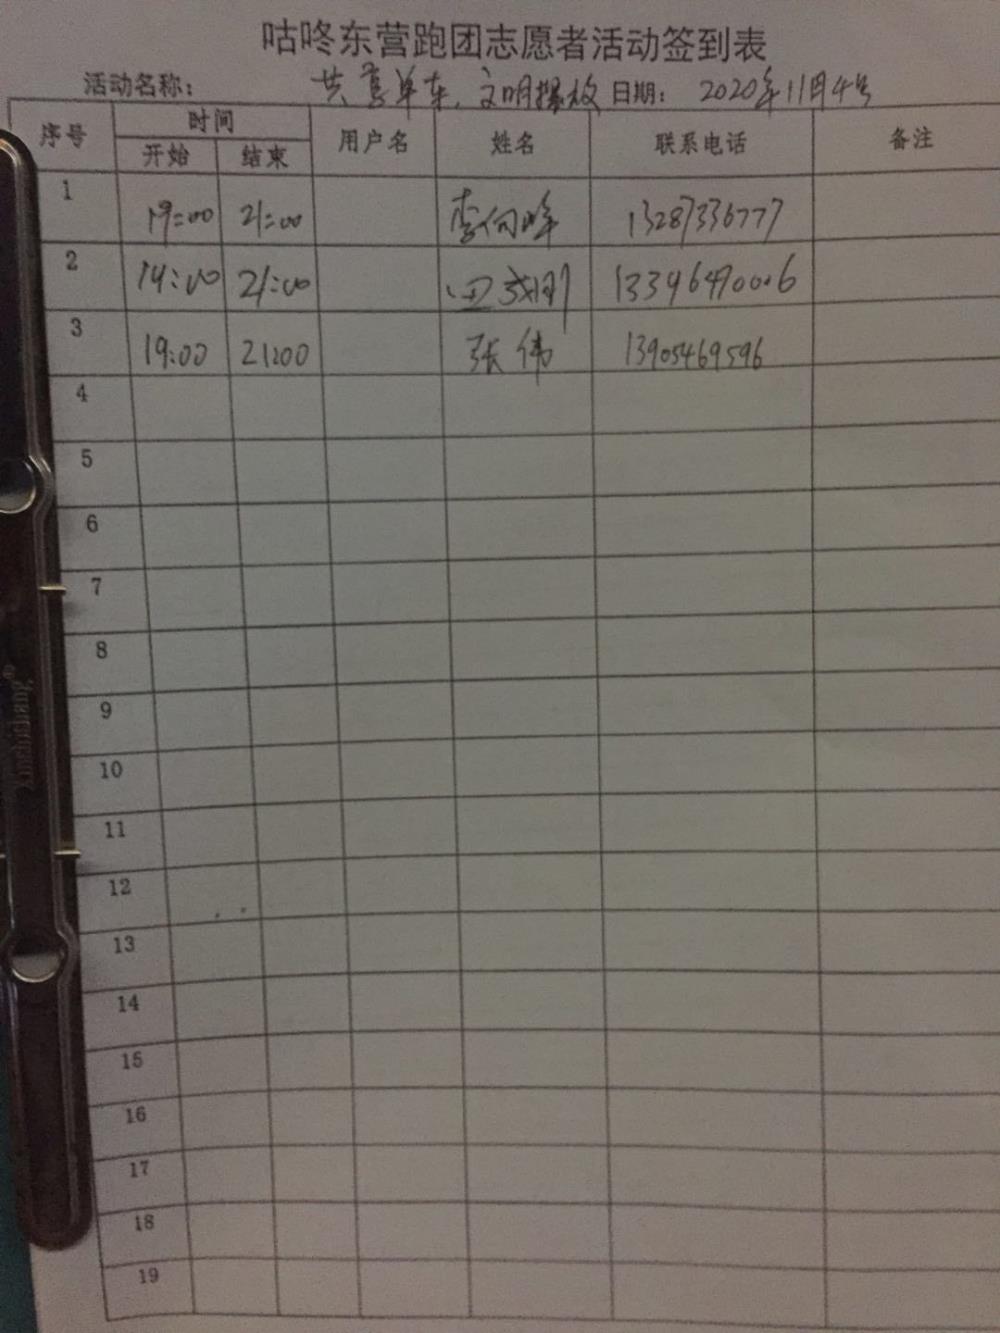 咕咚东营跑团志愿者活动签到表
活动名称： 共享单车，文明摆放 日期： 2020年11月4号
序号 时间 用户名 姓名 联系电话 备注
开始 结束
1 19:00 21:00 李向峰 13287336777
2 19:00 21:00 13396490006
3 19:00 21:00 张伟 13905469596
4
5
6
7
8
9
10
11
12
13
14
15
16
17
18
19